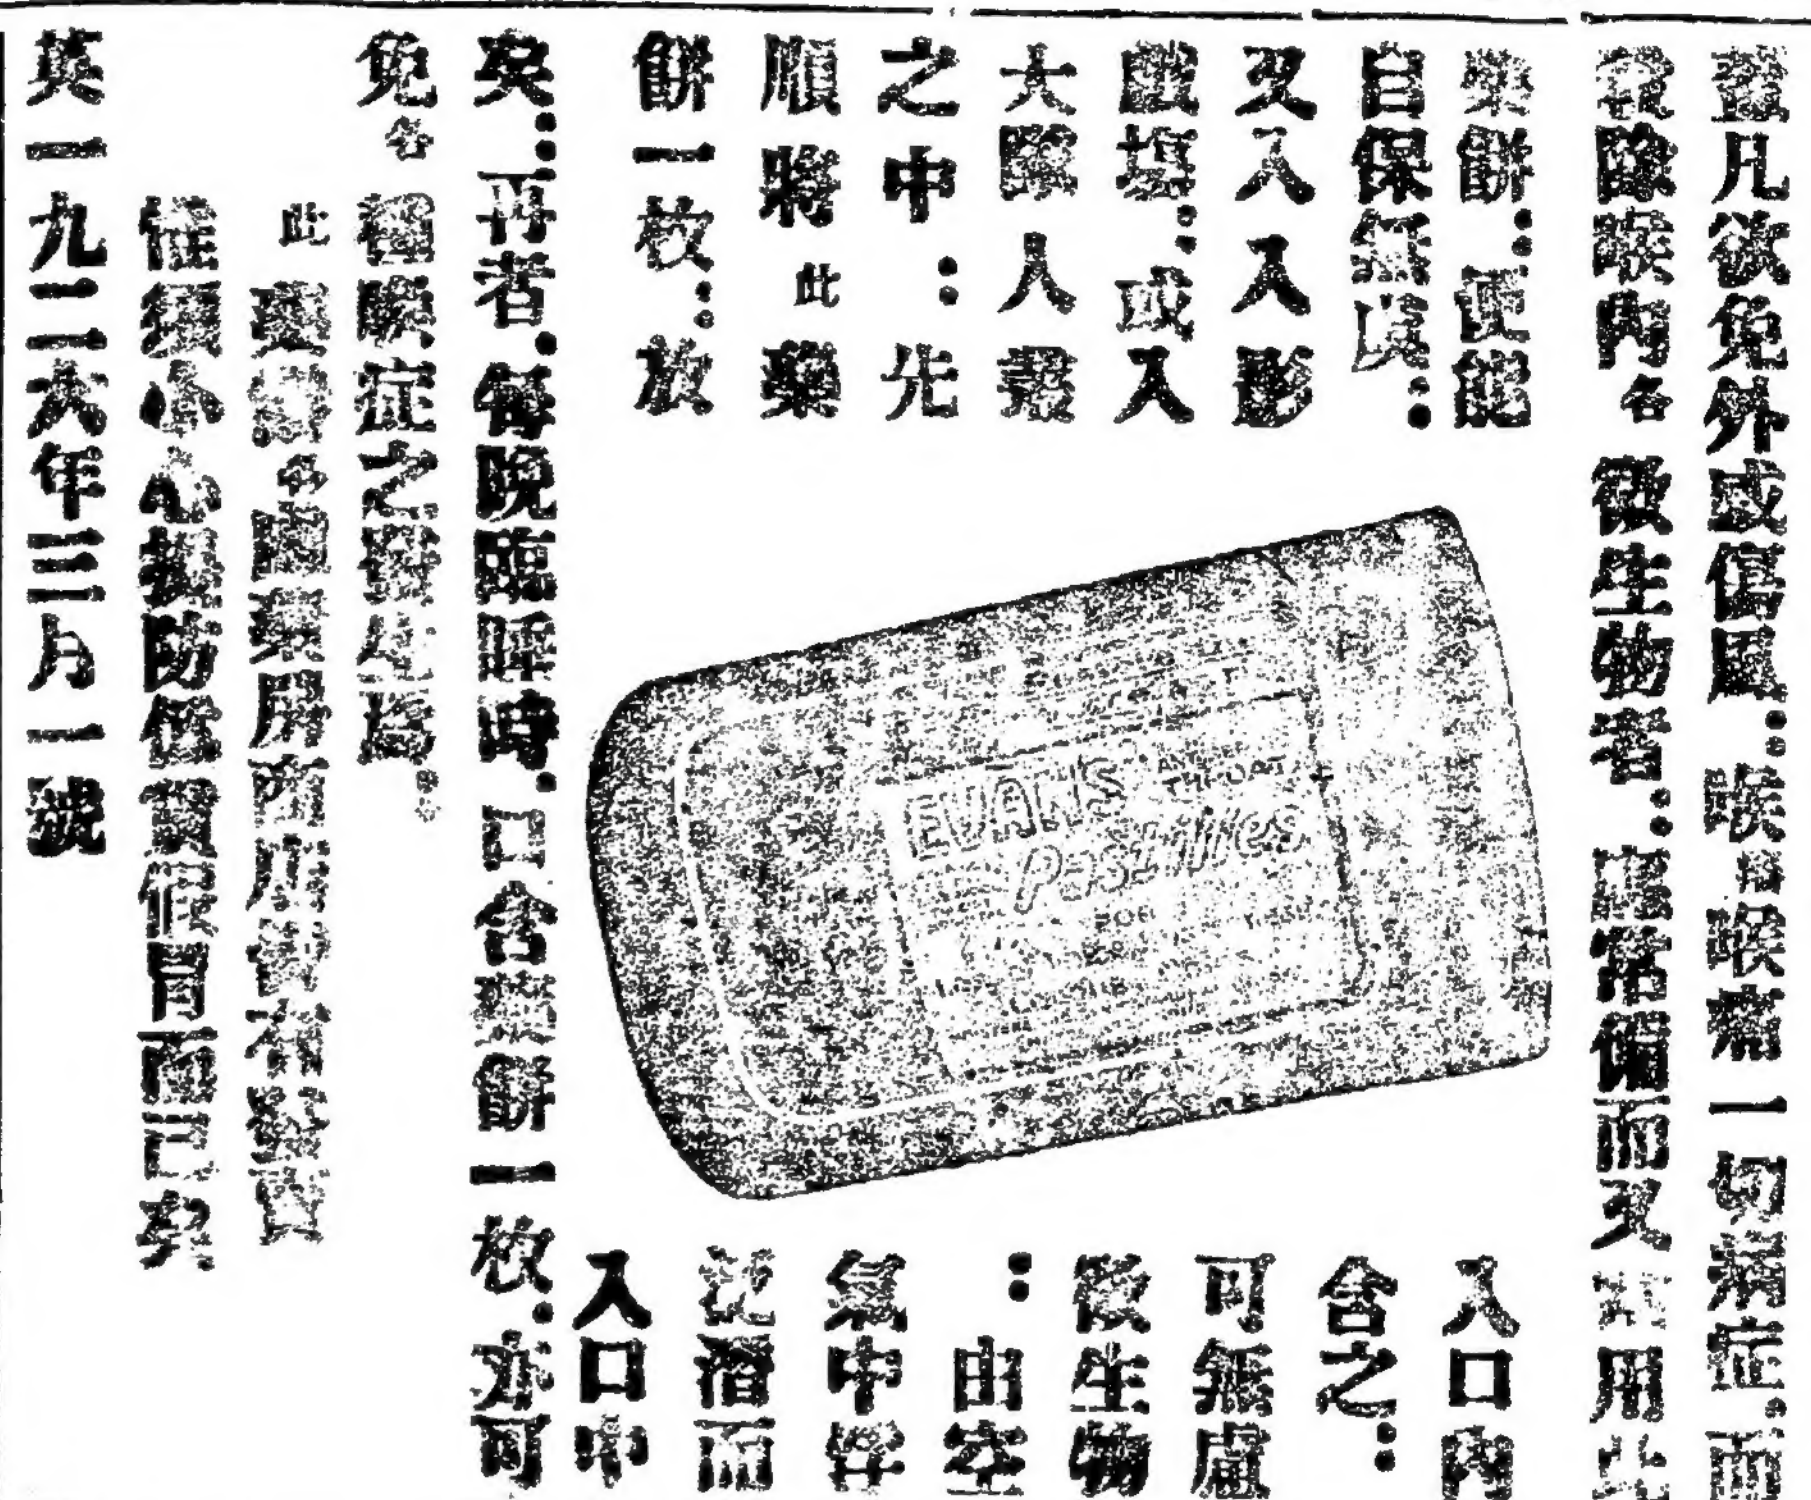 蓋凡欲免外或傷風：咳嗽喉痛一切病症.而
殺除喉內各微生物者.應常備而又常用此
藥餅.便能
自保無虞：
又入入影
戲場.或入
大隊人叢
之中：先
順將此藥
餅一枚.放
入口內
含之：
可無慮
微生物
：由空
氣中浮
混溜而
入口中
矣：再者.每晚臨睡時.口含藥餅一枚.亦可
免各種喉症之發生焉。
此藥餅各西藥房西店均有發賣
惟須小心提防僞貨假冒而已矣
英一九二六年三月一號
EVANS
THROAT
Pastilles